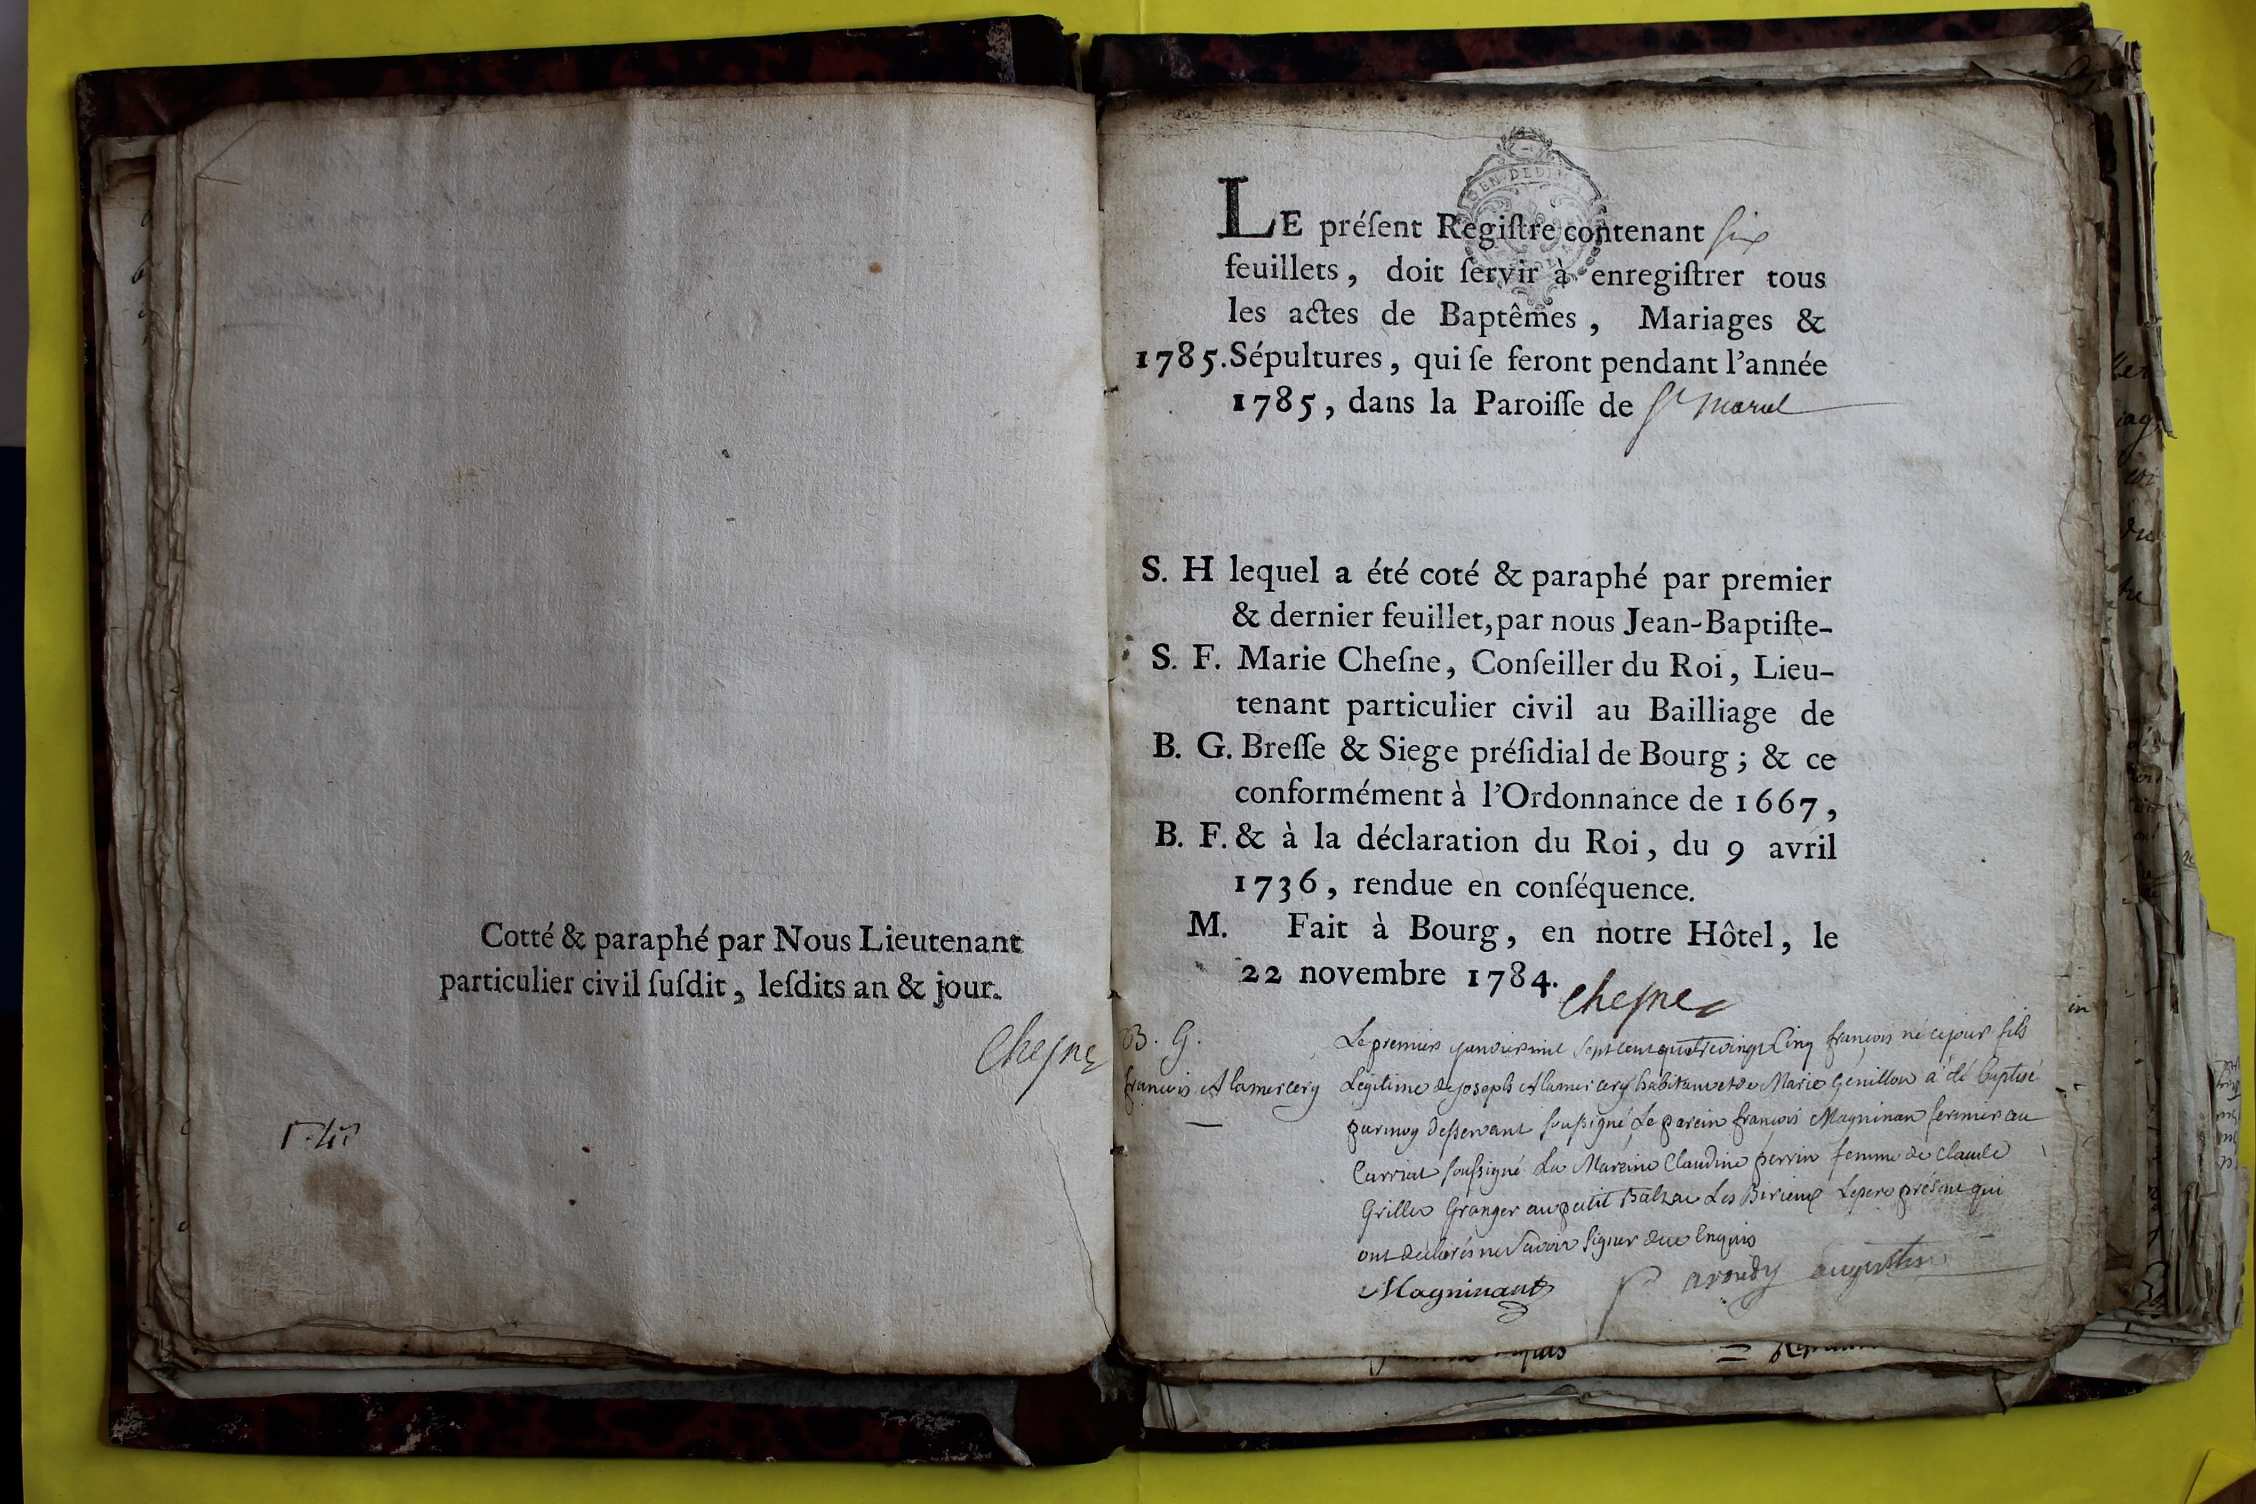 Cotté & paraphé par Nous Lieutenant
particulier civil ſuſdit, leſdits an & jour.
Cheſne
LE préſent Regiſtre contenant ſix
feuillets, doit ſervir à enregiſtrer tous
les actes de Baptêmes, Mariages &
1785. Sépultures, qui ſe feront pendant l'année
1785, dans la Paroiſſe de St Marcel
S. H lequel a été coté & paraphé par premier
& dernier feuillet, par nous Jean-Baptiſte-
S. F. Marie Cheſne, Conſeiller du Roi, Lieu-
tenant particulier civil au Bailliage de
B. G. Breſſe & Siege préſidial de Bourg; & ce
conformément à l'Ordonnance de 1667,
B. F. & à la déclaration du Roi, du 9 avril
1736, rendue en conſéquence.
M. Fait à Bourg, en notre Hôtel, le
22 novembre 1784.
Cheſne
B. G.
françois Alamercery
Le premier janvier mil sept cent quatre vingt Cinq françois né ce jour fils
Légitime de joseph Alamercery habitant et de Marie Genillon a été baptisé
par moy desservant soussigné Le parein françois Magninan fermier au
Carriat soussigné La Mareine Claudine perrin femme de claude
Grillet Granger au petit Balzac Les Birieux Le pere présent qui
ont declarés ne savoir signer de ce Enquis
Magninant